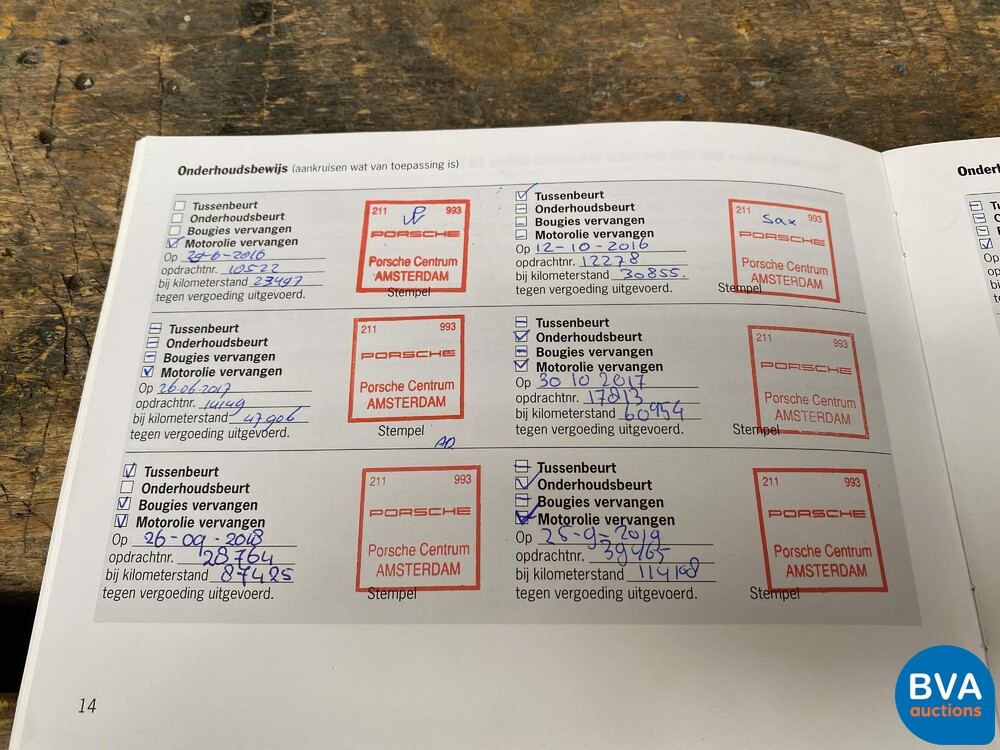 Onderhoudsbewijs (aankruisen wat van toepassing is)
Tussenbeurt
Onderhoudsbeurt
Bougies vervangen
Motorolie vervangen
Op 29-6-2016
opdrachtnr. 10522
bij kilometerstand 23497
tegen vergoeding uitgevoerd.
211 993
PORSCHE
Porsche Centrum
AMSTERDAM
Stempel
Tussenbeurt
Onderhoudsbeurt
Bougies vervangen
Motorolie vervangen
Op 12-10-2016
opdrachtnr. 12278
bij kilometerstand 30855.
tegen vergoeding uitgevoerd.
211 993
Sax
PORSCHE
Porsche Centrum
AMSTERDAM
Stempel
Tussenbeurt
Onderhoudsbeurt
Bougies vervangen
Motorolie vervangen
Op 26-06-2017
opdrachtnr. 14149
bij kilometerstand 47906
tegen vergoeding uitgevoerd.
211 993
PORSCHE
Porsche Centrum
AMSTERDAM
Stempel
Tussenbeurt
Onderhoudsbeurt
Bougies vervangen
Motorolie vervangen
Op 30 10 2017
opdrachtnr. 17813
bij kilometerstand 60954
tegen vergoeding uitgevoerd.
211 993
PORSCHE
Porsche Centrum
AMSTERDAM
Stempel
Tussenbeurt
Onderhoudsbeurt
Bougies vervangen
Motorolie vervangen
Op 26-09-2018
opdrachtnr. 28764
bij kilometerstand 87425
tegen vergoeding uitgevoerd.
211 993
PORSCHE
Porsche Centrum
AMSTERDAM
Stempel
Tussenbeurt
Onderhoudsbeurt
Bougies vervangen
Motorolie vervangen
Op 25-9-2019
opdrachtnr. 39465
bij kilometerstand 114168
tegen vergoeding uitgevoerd.
211 993
PORSCHE
Porsche Centrum
AMSTERDAM
Stempel
14
BVA
auctions